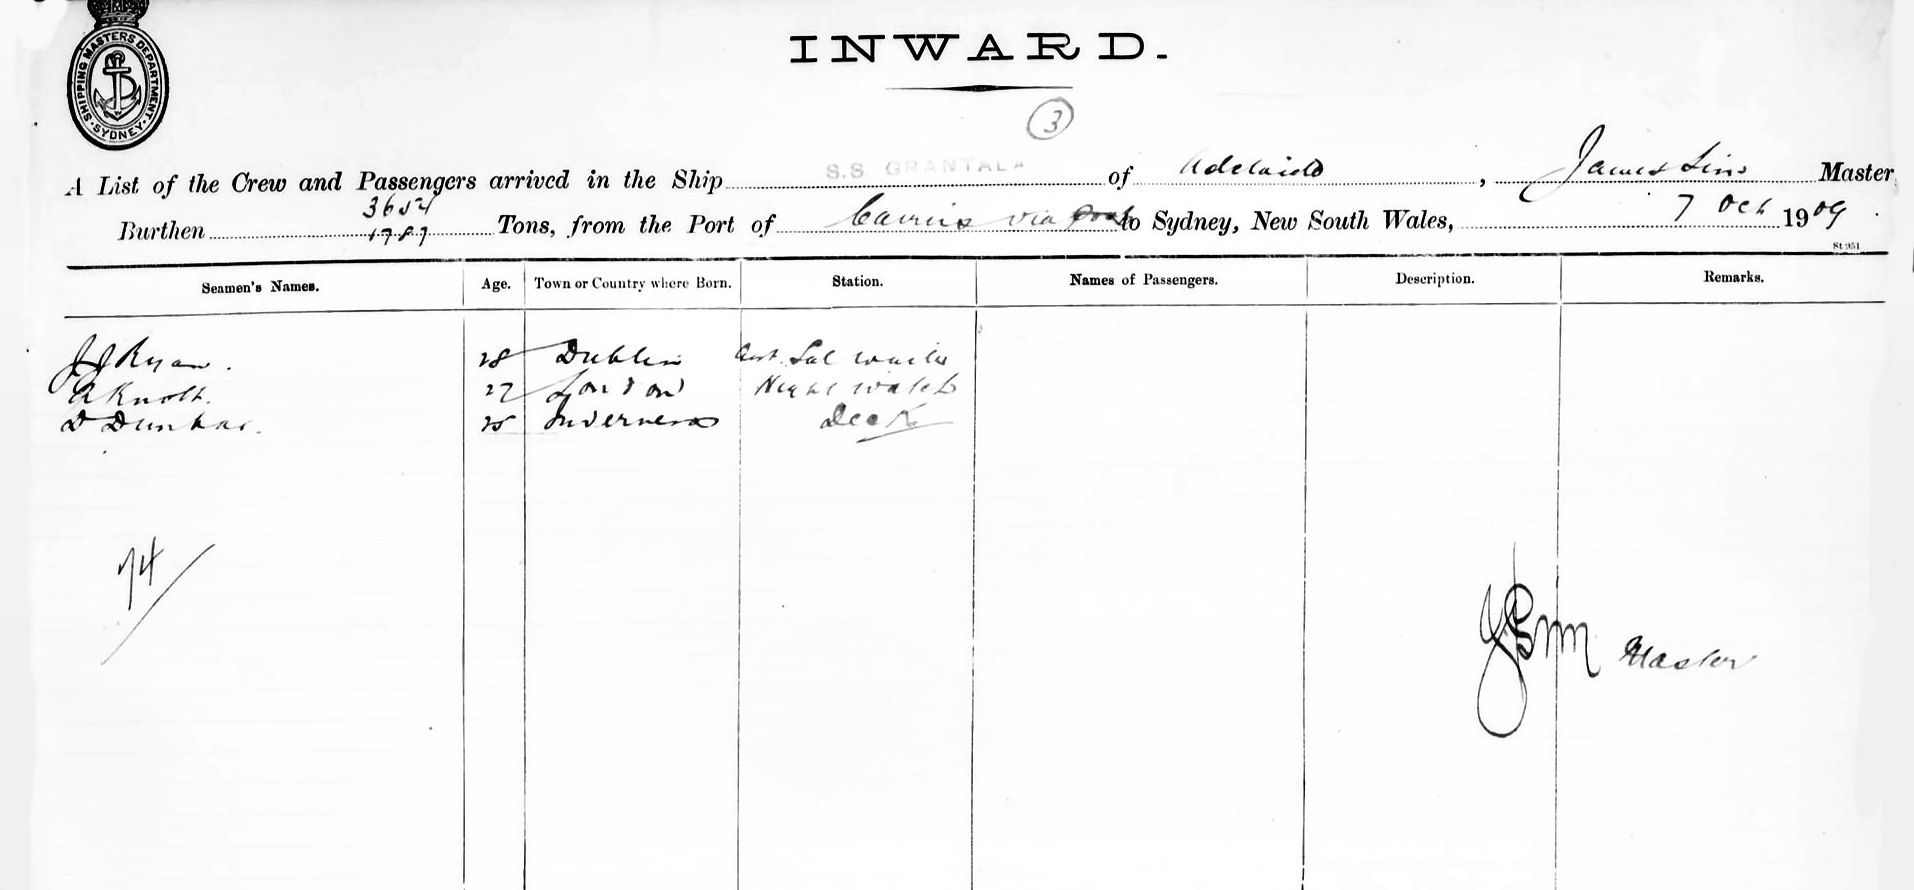 SHIPPING MASTERS DEPARTMENT
SYDNEY
INWARD.
3
A List of the Crew and Passengers arrived in the Ship S.S. GRANTALA of Adelaide, James Sim Master
Burthen 3654 1787 Tons, from the Port of Cairns via to Sydney, New South Wales, 7 Oct 1909
St 951
Seamen's Names. Age. Town or Country where Born. Station. Names of Passengers. Description. Remarks.
J J Ryan. 28 Dublin Asst. Sal waiter
A Knoth. 27 London Night watch
D Dunbar. 25 Inverness Deck
74
Master